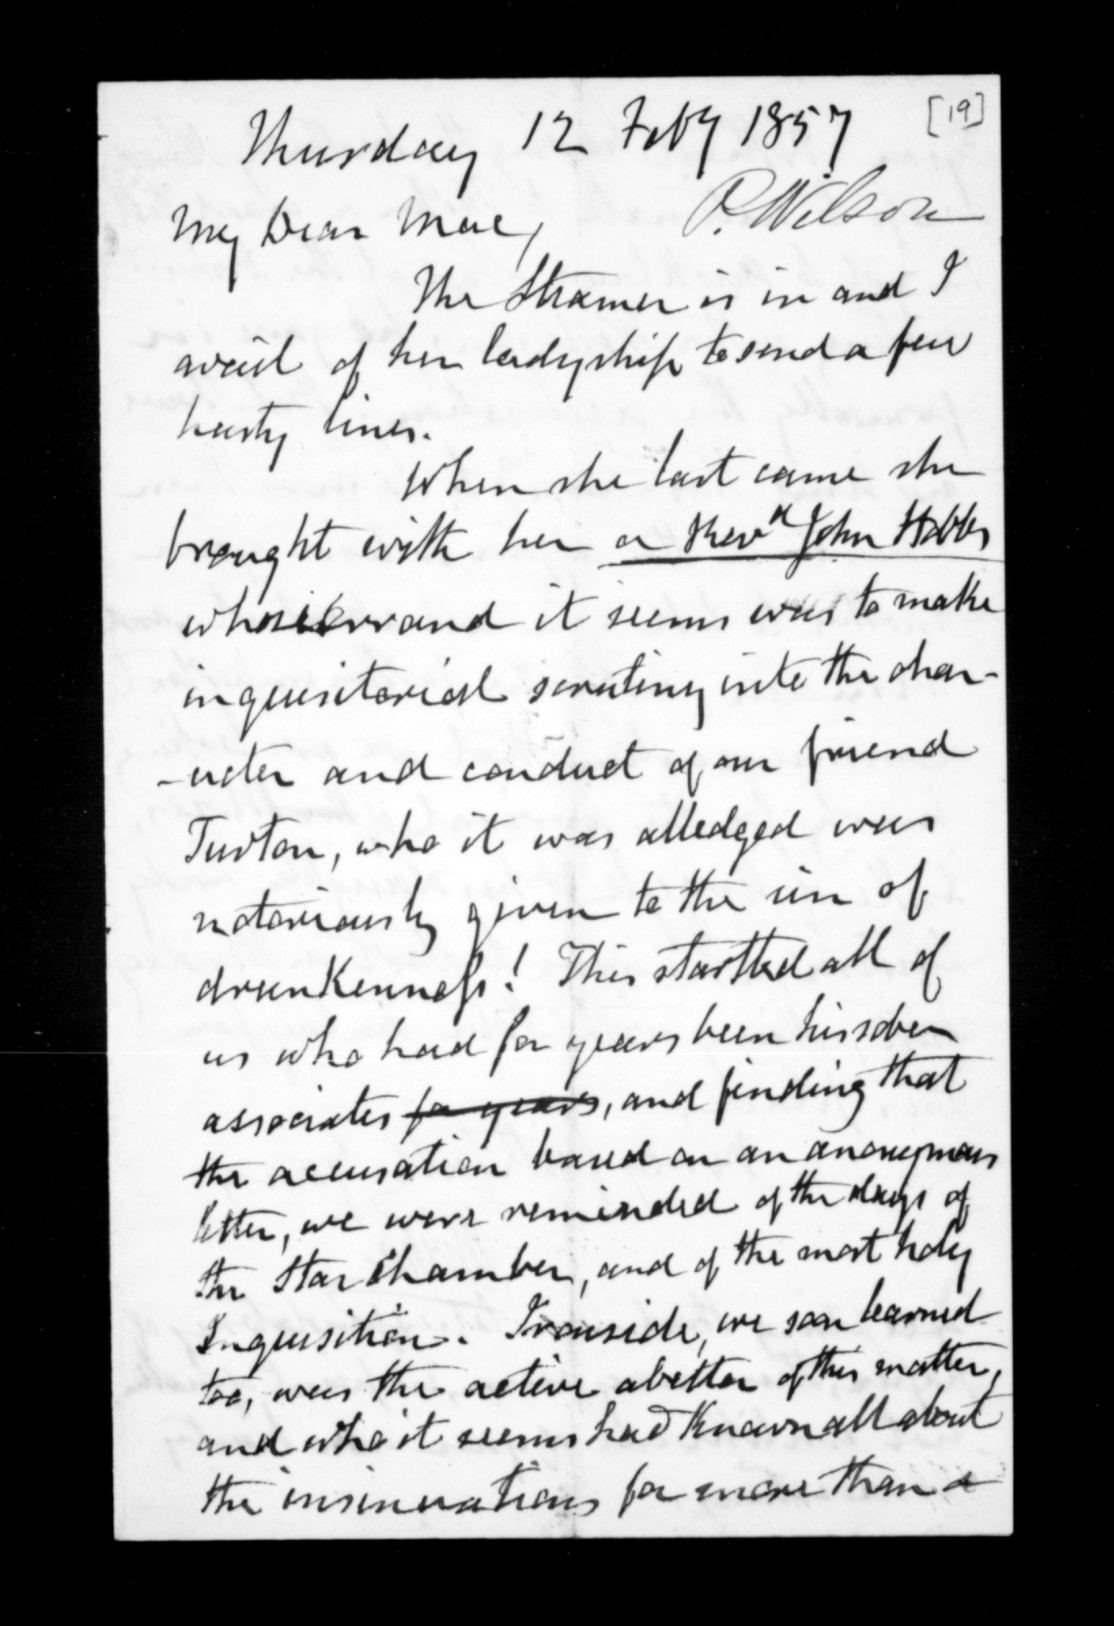 [19]
Thursday 12 Feby 1857
P. Wilson
My Dear Mac,
The Steamer is in and I
avail of her ladyship to send a few
hasty lines.
When she last came she
brought with her a Revd John Hobbs
whose errand it seems was to make
inquisitorial scrutiny into the char-
-acter and conduct of our friend
Turton, who it was alledged was
notoriously given to the sin of
drunkenness! This startled all of
us who had for years been his sober
associates for years, and finding that
the accusation based on an anonymous
letter, we were reminded of the days of
the Star Chamber, and of the most holy
Inquisition. Ironside, we soon learned
too, was the active abettor of this matter,
and who it seems had known all about
the insinuations for more than a